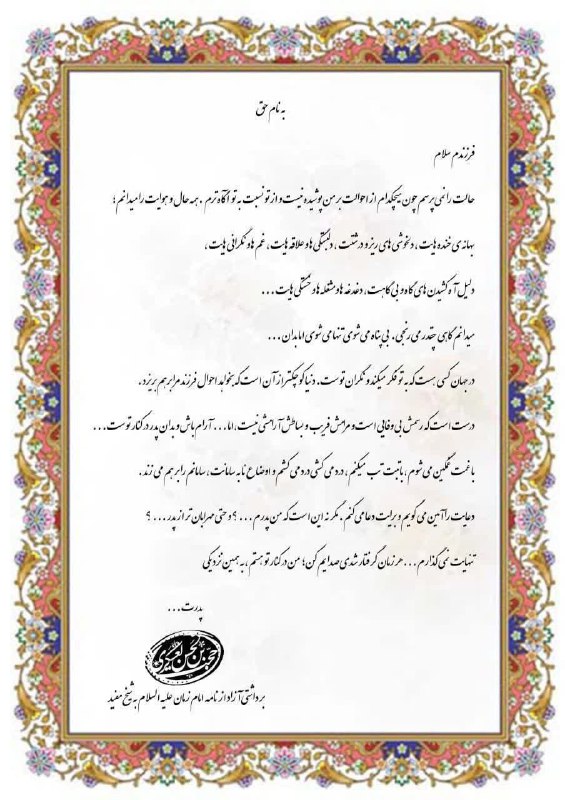 به نام حق
فرزندم سلام
حالت را نمی پرسم چون هیچکدام از احوالت بر من پوشیده نیست و از تو نسبت به تو آگاه ترم . همه حال و هوایت را میدانم ؛
بهانه ی خنده هایت، دلخوشی های ریز و درشتت ، دلبستگی ها و علاقه هایت، غم ها و نگرانی هایت،
دلیل آه کشیدن های گاه و بی گاهت، دغدغه ها و مشغله ها و خستگی هایت ...
میدانم گاهی چقدر می رنجی، بی پناه می شوی تنها می شوی اما بدان ...
در جهان کسی هست که به تو فکر میکند و نگران توست . دنیا کوچکتر از آن است که بخواهد احوال فرزند مرا بر هم بریزد.
درست است که رسمش بی وفایی است و مرامش فریب و بساطش آرامشی نیست، اما ... آرام باش و بدان پدر در کنار توست ...
با غمت غمگین می شوم ، با تبت تب میکنم ، درد می کشی درد می کشم و اوضاع نابه سامانت، سامانم را بر هم می زند.
دعایت را آمین می گویم و برایت دعا می کنم . مگر نه این است که من پدرم ... ؟ و حتی مهربان تر از پدر ... ؟
تنهایت نمی گذارم ... هر زمان گرفتار شدی صدایم کن؛ من در کنار تو هستم ، به همین نزدیکی
پدرت ...
برداشتی آزاد از نامه امام زمان علیه السلام به شیخ مفید